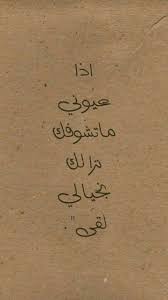 اذا
عيوني
ماتشوفك
ترا لك
بخيالي
لقى".